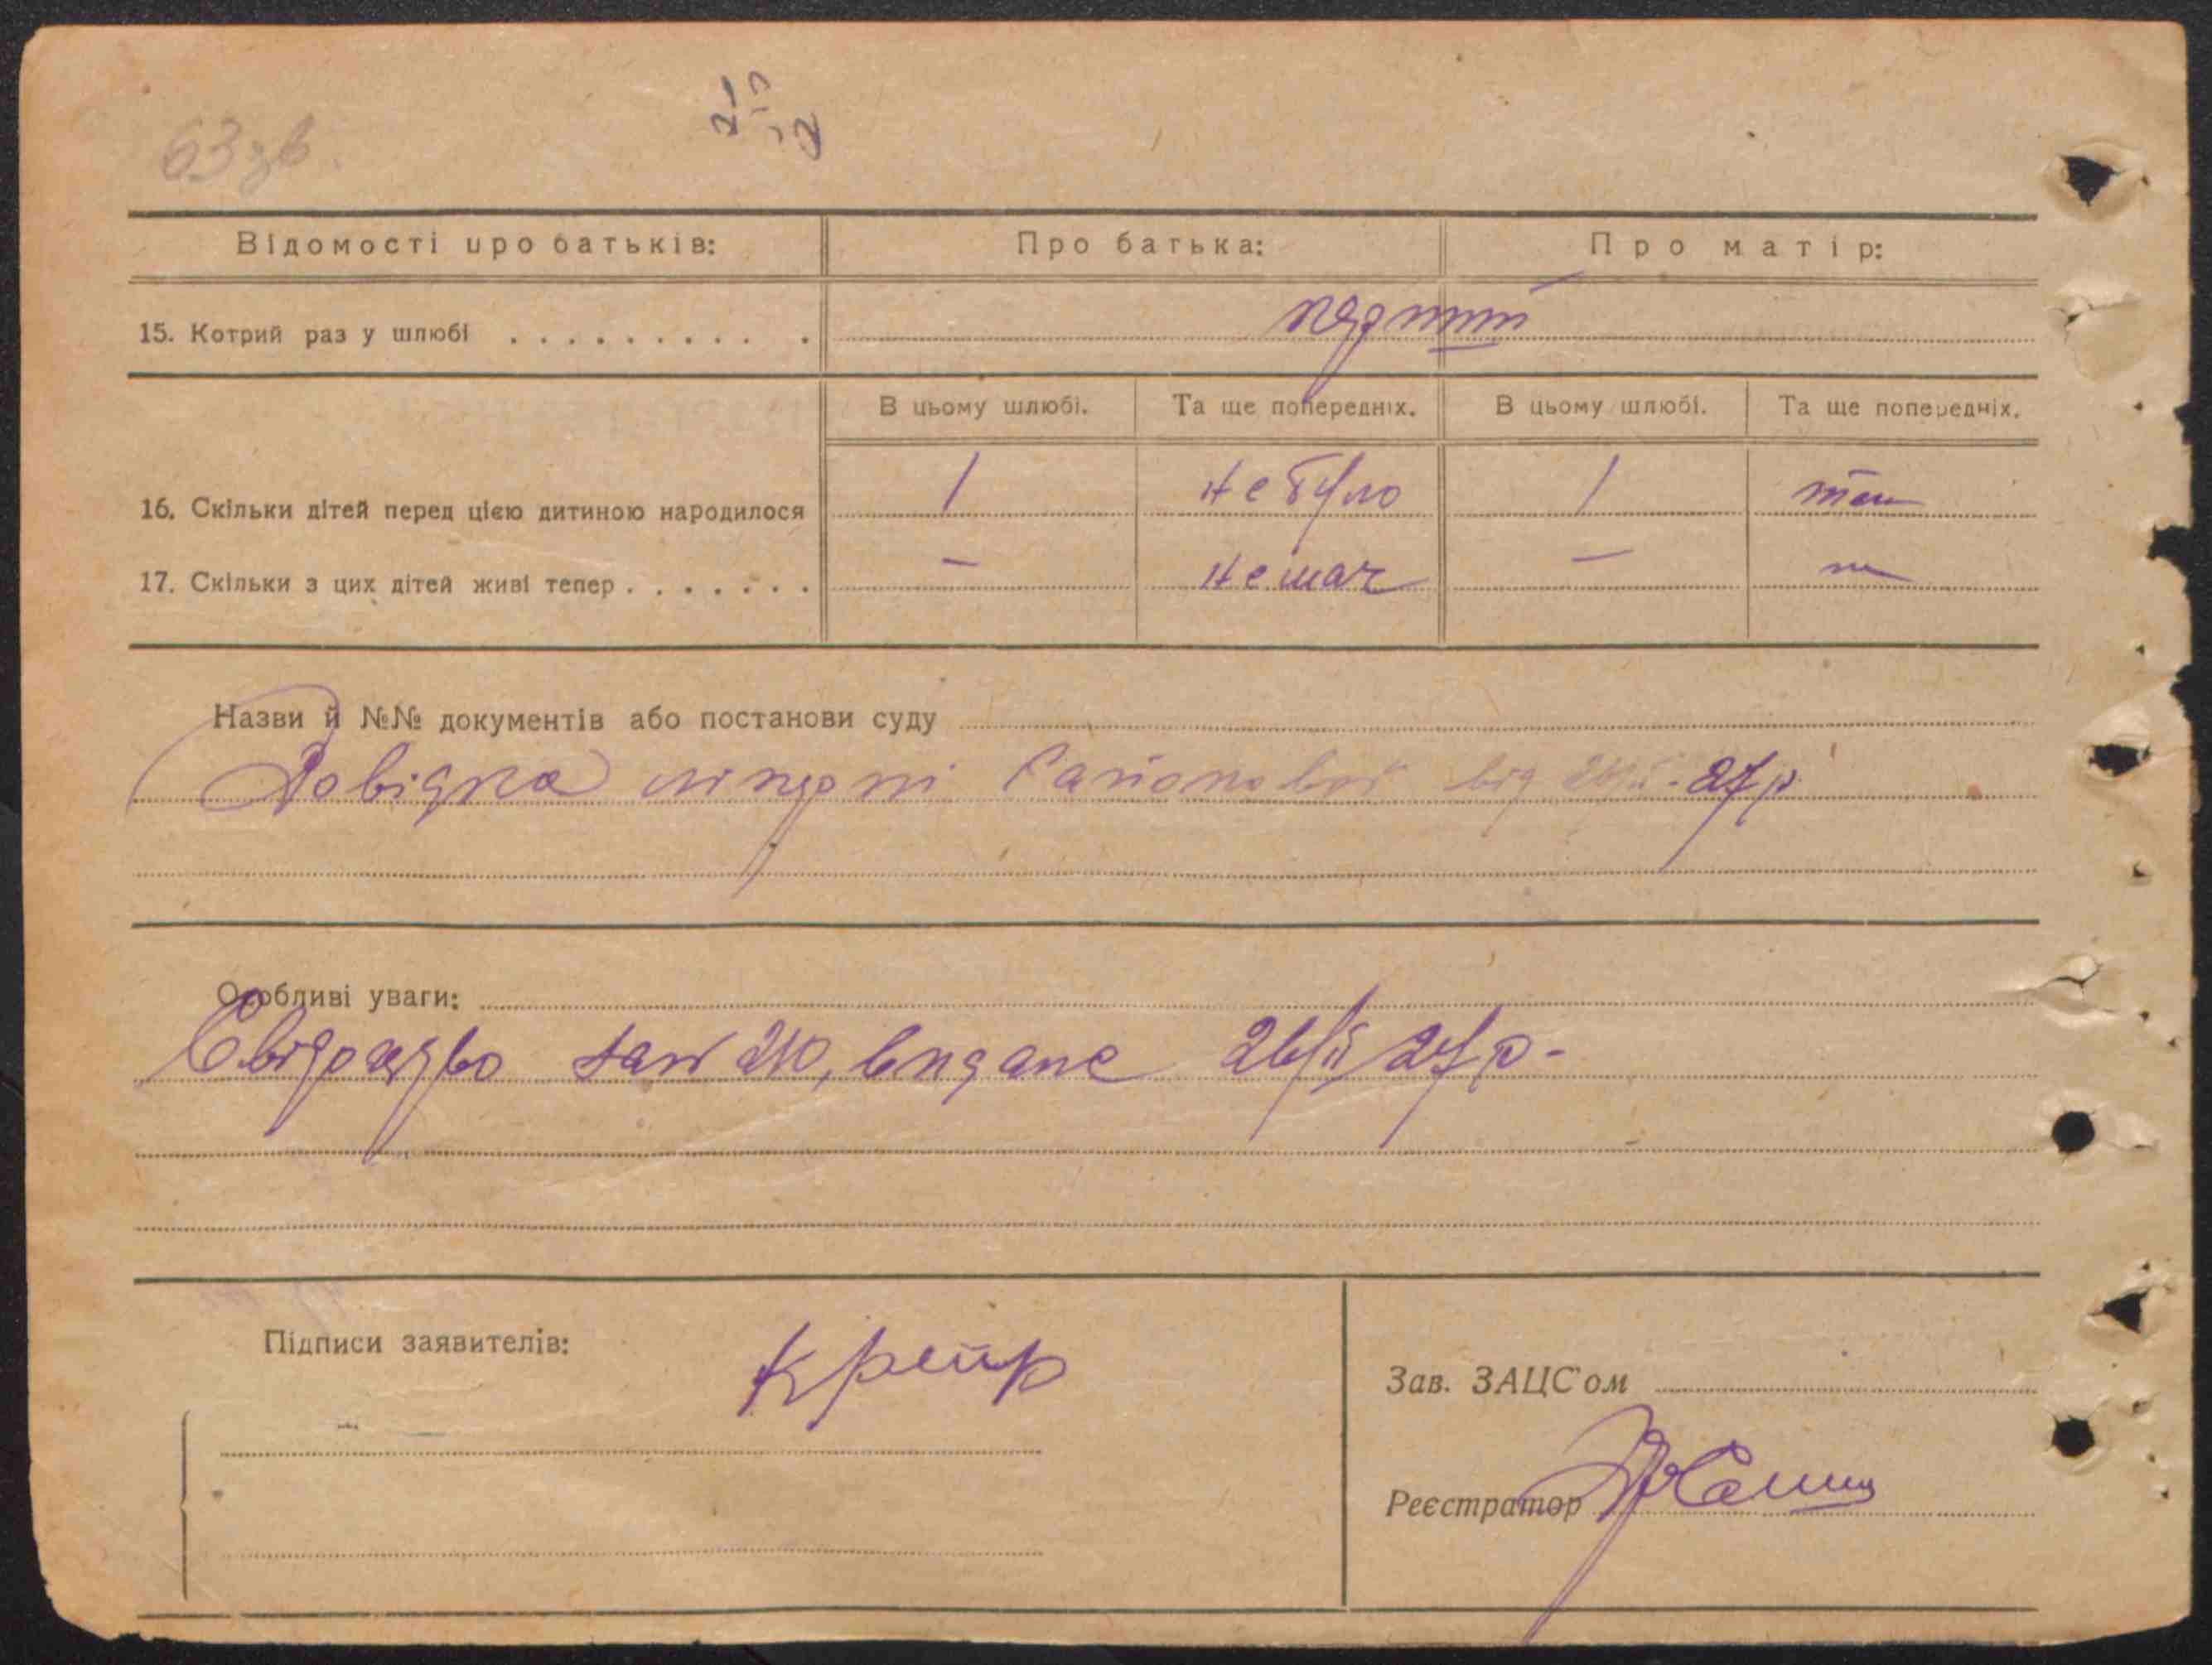 63 зв.
Відомості про батьків: Про батька: Про матір:
15. Котрий раз у шлюбі . . . . . . . . . .
В цьому шлюбі. Та ще попередніх. В цьому шлюбі. Та ще попередніх.
16. Скільки дітей перед цією дитиною народилося 1 не було 1 теж
17. Скільки з цих дітей живі тепер . . . . . . . — немає —
Назви й №№ документів або постанови суду
Довідка від 27 р
Особливі уваги:
Свідоцтво за № 210, видане 26/II 27 р -
Підписи заявителів:
Зав. ЗАЦС'ом
Реєстратор